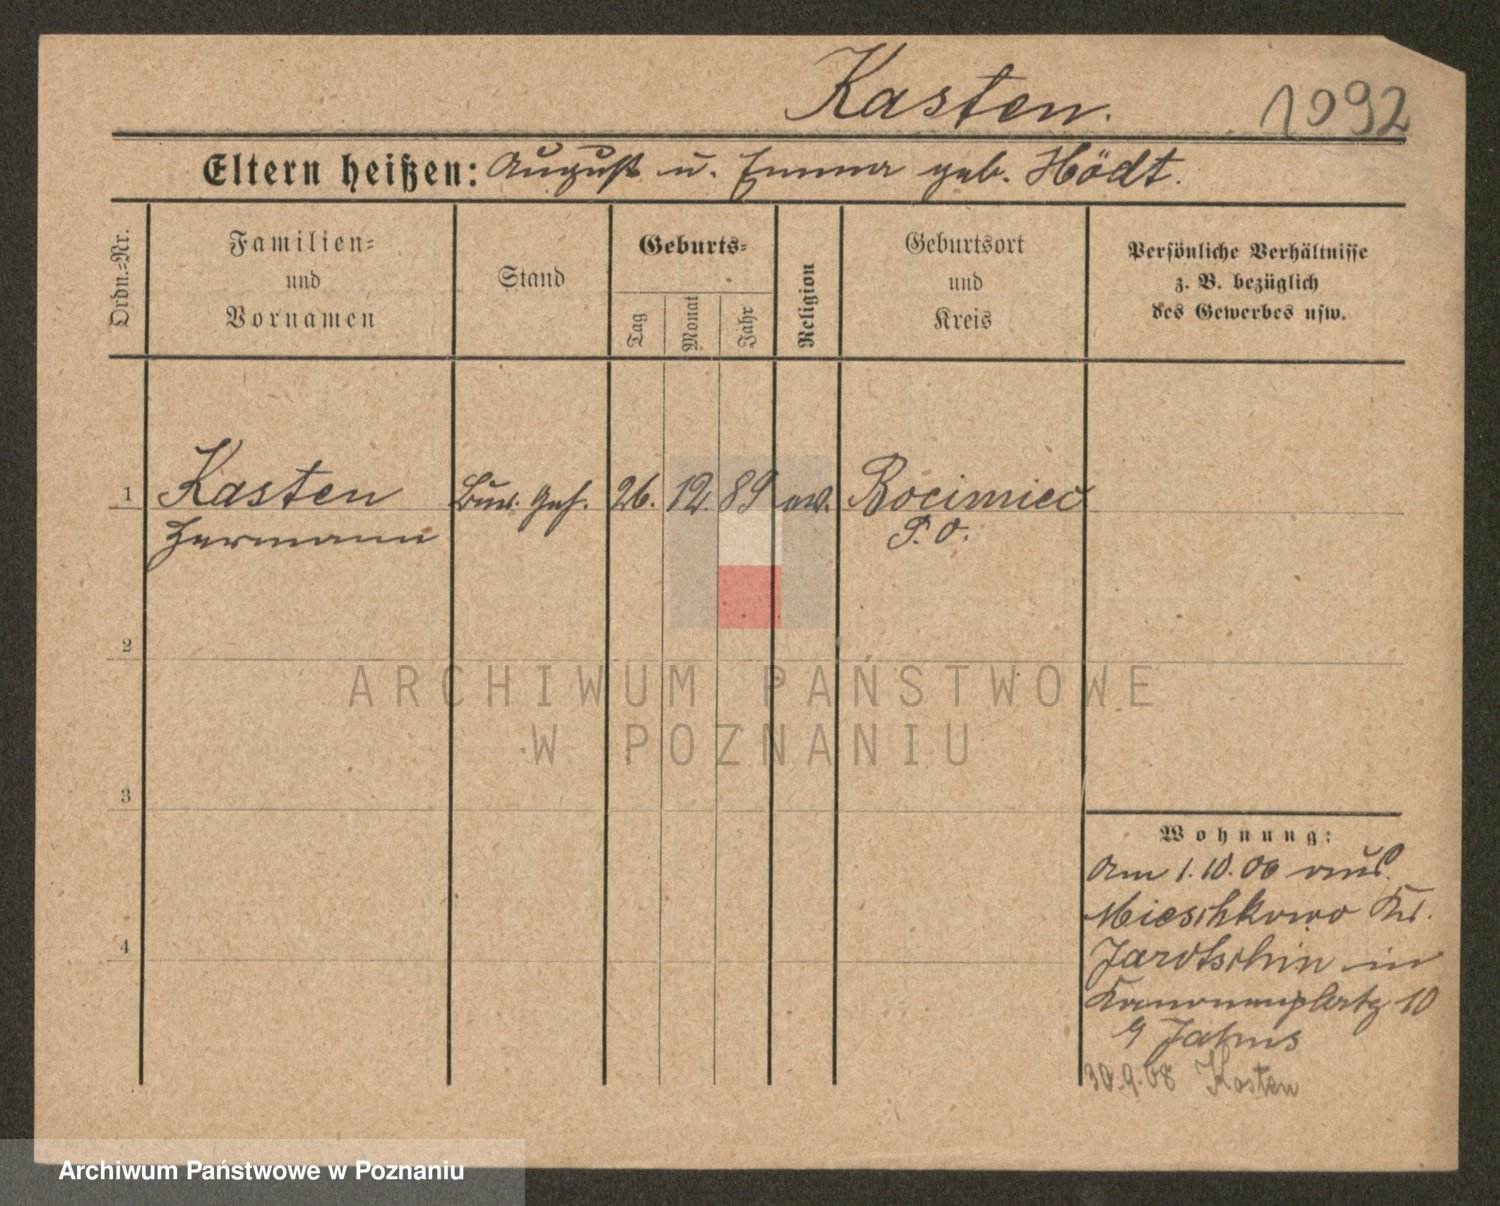 Kasten.
1092
Eltern heißen: August u. Emma geb. Hödt.
Ordn.=Nr.
Familien=
und
Vornamen
Stand
Geburts=
Tag
Monat
Jahr
Religion
Geburtsort
und
Kreis
Persönliche Verhältnisse
z. B. bezüglich
des Gewerbes usw.
1 Kasten 26. 12. 89 ev. Bocimiec
Hermann P. O.
2
3
4
ARCHIWUM PAŃSTWOWE
W POZNANIU
Wohnung:
Am 1.10.06 aus
Mieschkowo Kr.
Jarotschin in
Kanonenplatz 10
Jahns
30.9.08 Kosten
Archiwum Państwowe w Poznaniu